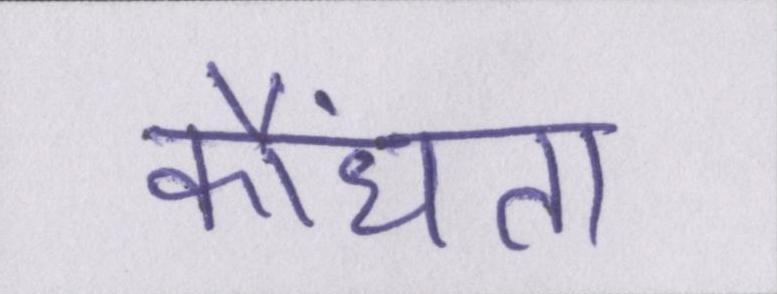 कौंधता